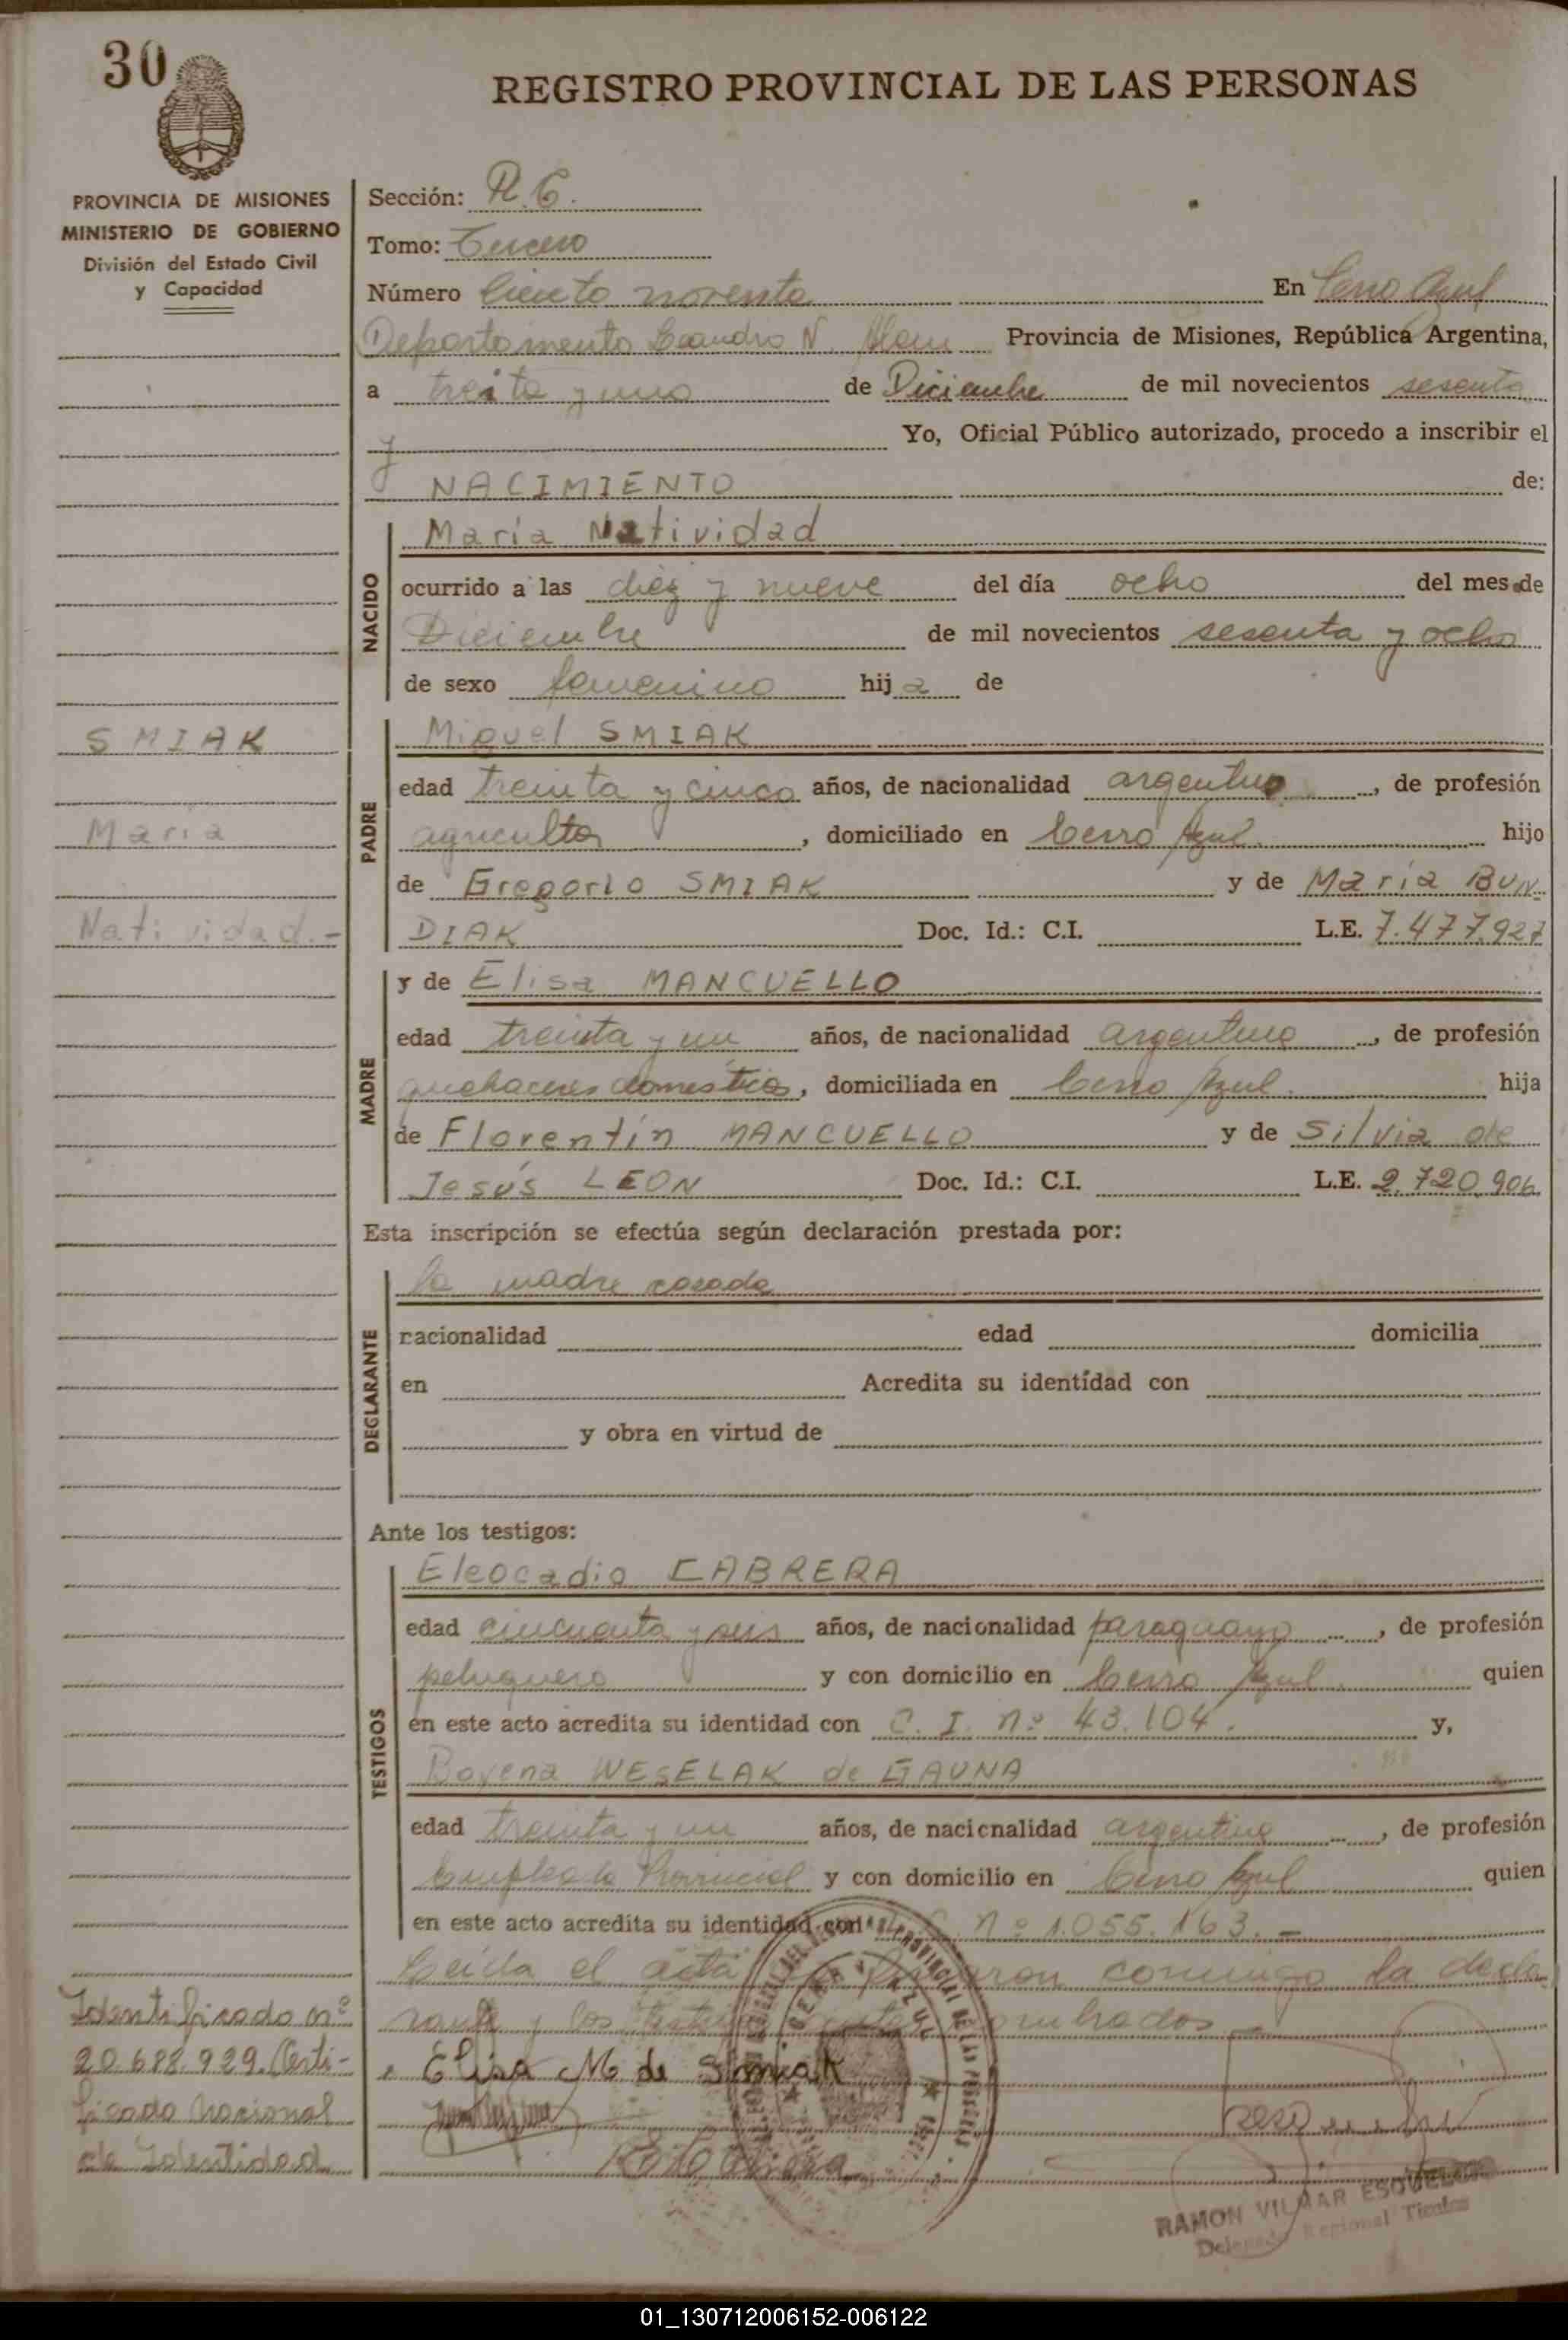 30
REGISTRO PROVINCIAL DE LAS PERSONAS
PROVINCIA DE MISIONES
MINISTERIO DE GOBIERNO
División del Estado Civil
y Capacidad
Sección: R.C.
Tomo: Tercero
Número Ciento noventa En Cerro Azul
Departamento Leandro N. Alem Provincia de Misiones, República Argentina,
a treita y uno de Diciembre de mil novecientos sesenta
y Yo, Oficial Público autorizado, procedo a inscribir el
NACIMIENTO de:
NACIDO
María Natividad
ocurrido a las diez y nueve del día ocho del mes de
Diciembre de mil novecientos sesenta y ocho
de sexo femenino hija de
SMIAK
María
Natividad.-
PADRE
Miguel SMIAK
edad treinta y cinco años, de nacionalidad argentino, de profesión
agricultor, domiciliado en Cerro Azul. hijo
de Gregorio SMIAK y de María BUN
DIAK Doc. Id.: C.I. L.E. 7.477.927
MADRE
y de Elisa MANCUELLO
edad treinta y un años, de nacionalidad argentina, de profesión
quehaceres domésticos, domiciliada en Cerro Azul. hija
de Florentín MANCUELLO y de Silvia de
Jesús LEON Doc. Id.: C.I. L.E. 2.720.906
Esta inscripción se efectúa según declaración prestada por:
DECLARANTE
la madre casada
nacionalidad edad domicilia
en Acredita su identidad con
y obra en virtud de
Ante los testigos:
TESTIGOS
Eleocadio CABRERA
edad cincuenta y seis años, de nacionalidad paraguayo, de profesión
peluquero y con domicilio en Cerro Azul. quien
en este acto acredita su identidad con C.I. nº 43.104. y,
Bovena WESELAK de GAUNA
edad treinta y un años, de nacionalidad argentina, de profesión
Empleada Provincial y con domicilio en Cerro Azul quien
en este acto acredita su identidad con nº 1.055.163.-
Leída el acta la firmaron conmigo la decla
rante y los testigos nombrados
Elisa M de Smiak
Identificado nº
20.688.929. Certi-
ficado Nacional
de Identidad
RAMON VILMAR ESQUIVEL
Delegado Regional Titular
01_130712006152-006122